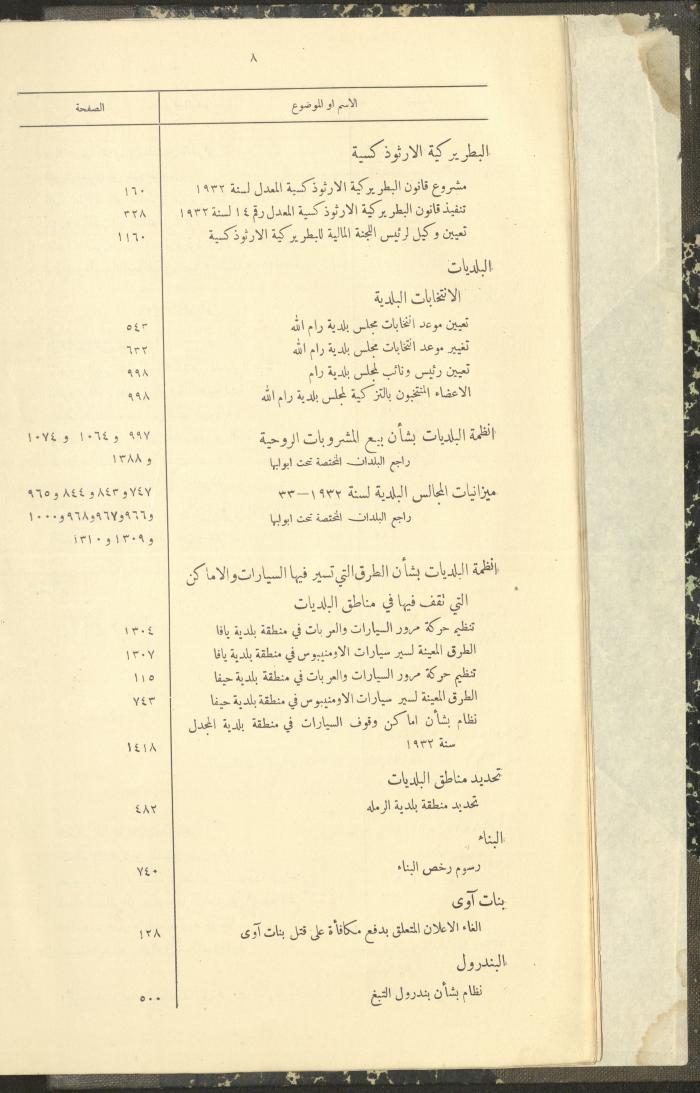 ٨
الاسم او الموضوع الصفحة
البطريركية الارثوذكسية
مشروع قانون البطريركية الارثوذكسية المعدل لسنة ١٩٣٢ ١٦٠
تنفيذ قانون البطريركية الارثوذكسية المعدل رقم ١٤ لسنة ١٩٣٢ ٣٢٨
تعيين وكيل لرئيس اللجنة المالية للبطريركية الارثوذكسية ١١٦٠
البلديات
الانتخابات البلدية
تعيين موعد انتخابات مجلس بلدية رام الله ٥٤٣
تغيير موعد انتخابات مجلس بلدية رام الله ٦٣٢
تعيين رئيس ونائب لمجلس بلدية رام ٩٩٨
الاعضاء المنتخبون بالتزكية لمجلس بلدية رام الله ٩٩٨
انظمة البلديات بشأن بيع المشروبات الروحية ٩٩٧ و ١٠٦٤ و ١٠٧٤
راجع البلدان المختصة تحت ابوابها و ١٣٨٨
ميزانيات المجالس البلدية لسنة ١٩٣٢—٣٣ ٧٤٧ و ٨٤٣ و ٨٤٤ و ٩٦٥
راجع البلدان المختصة تحت ابوابها و٩٦٦ و٩٦٧ و٩٦٨ و١٠٠٠
و ١٣٠٩ و ١٣١٠
انظمة البلديات بشأن الطرق التي تسير فيها السيارات والاماكن
التي تقف فيها في مناطق البلديات
تنظيم حركة مرور السيارات والعربات في منطقة بلدية يافا ١٣٠٤
الطرق المعينة لسير سيارات الاومنيبوس في منطقة بلدية يافا ١٣٠٧
تنظيم حركة مرور السيارات والعربات في منطقة بلدية حيفا ١١٥
الطرق المعينة لسير سيارات الاومنيبوس في منطقة بلدية حيفا ٧٤٣
نظام بشأن اماكن وقوف السيارات في منطقة بلدية المجدل
سنة ١٩٣٢ ١٤١٨
تحديد مناطق البلديات
تحديد منطقة بلدية الرمله ٤٨٢
البناء
رسوم رخص البناء ٧٤٠
بنات آوى
الغاء الاعلان المتعلق بدفع مكافأة على قتل بنات آوى ١٢٨
البندرول
نظام بشأن بندرول التبغ ٥٠٠